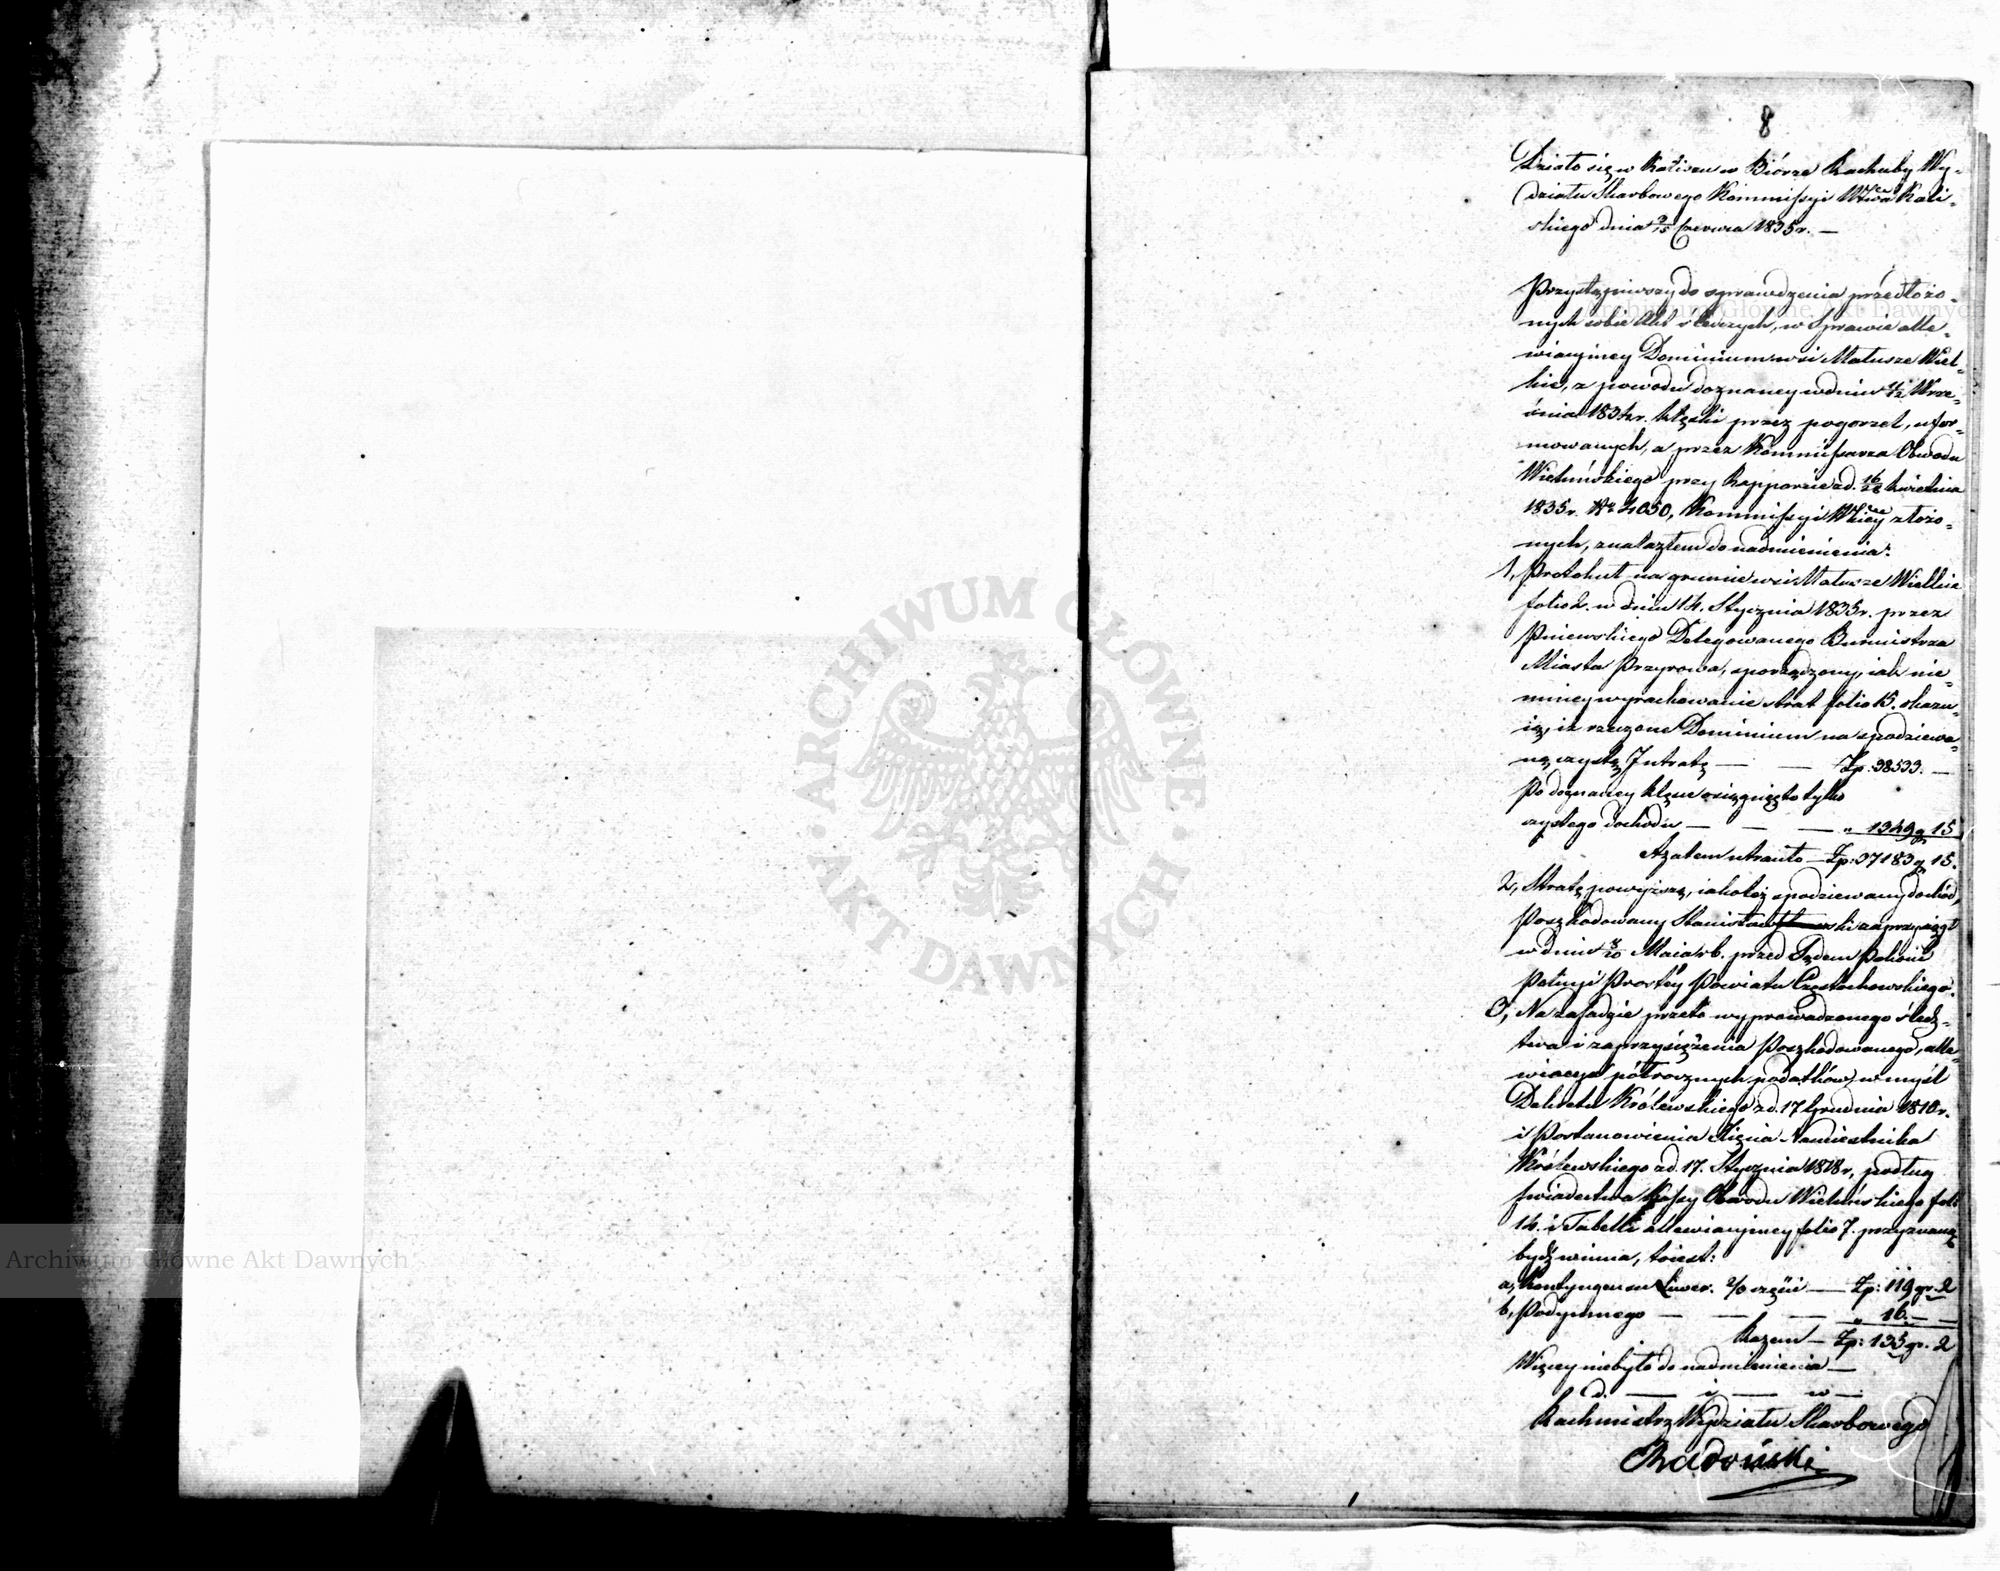 8
Działo się w Kaliszu w Biórze Rachuby Wy-
działu Skarbowego Kommissyi Wtwa Kali-
skiego dnia 3/15 Czerwca 1835r. —
Przystąpiwszy do sprawdzenia przedłożo-
nych sobie Akt śledczych, w Sprawie alle-
wiacyjney Dominium wsi Małusze Wiel-
kie, z powodu doznaney w dniu Wrze-
śnia 1834r. klęski przez pogorzel, ufor-
mowanych, a przez Kommissarza Obwodu
Wieluńskiego przy Rapporcie z d. 16/28 Kwietnia
1835r. Nr 4050, Kommissyi Wkiey złożo-
nych, znalazłem do nadmienienia:
1, Protokuł na gruncie wsi Małusze Wielkie
folio 2. w dniu 14. Stycznia 1835r. przez
Pniewskiego Delegowanego Burmistrza
Miasta Przyrowa, sporządzony, iak nie-
mniey wyrachowanie strat folio 15. okazu-
ią, iż rzeczone Dominium na spodziewa-
ną czystą Intratę — — Zp. 38533. —
Po doznaney klęsce osiągnięto tylko
czystego dochodu — — — „ 1349 g 15
A zatem utraciło — Zp: 37183 g 15.
2, Stratę powyższą, iakoteż spodziewany dochód,
Poszkodowany Stanisław zaprzysiągł
w dniu 8/20 Maia r b. przed Sądem Pokoiu
Policyi Prostey Powiatu Częstochowskiego.
3, Na zasadzie przeto wyprowadzonego śledz-
twa i zaprzysiężenia Poszkodowanego, alle-
wiacya półrocznych podatków, w myśl
Dekretu Królewskiego z d. 17 Grudnia 1810r.
i Postanowienia Xięcia Namiestnika
Królewskiego z d. 17. Stycznia 1818r, podług
świadectwa Kassy Obwodu Wieluńskiego foli
14. i Tabelli allewiacyjney folio 7. przyznaną
bydź winna, toiest:
a, Kontyngensu Liwer. 2/3 części — Zp: 119 gr. 2
b, Podymnego — — — „ 16. — —
Razem — Zp: 135 gr. 2
Więcey niebyło do nadmienienia —
d. — i — w —
Rachmistrz Wydziału Skarbowego
Radoński
ARCHIWUM GŁÓWNE
AKT DAWNYCH
Archiwum Główne Akt Dawnych
Archiwum Główne Akt Dawnych